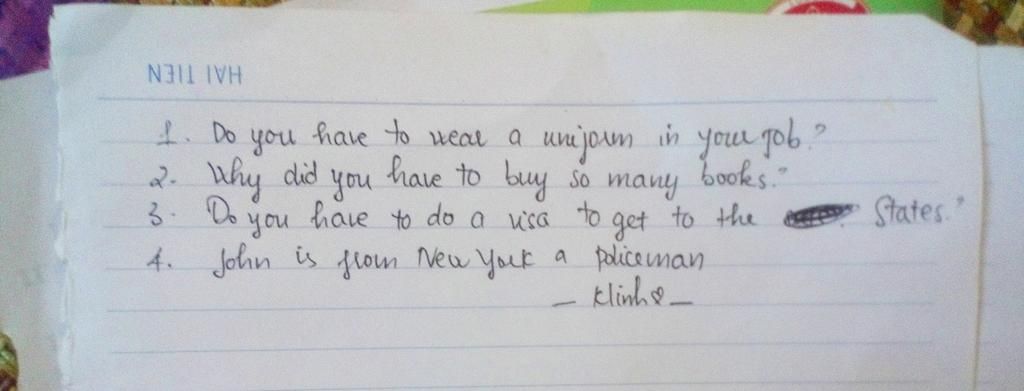 HAI TIEN
1. Do you have to wear a uniform in your job?
2. Why did you have to buy so many books?
3. Do you have to do a visa to get to the States?
4. John is from New York a policeman
— Klinh —